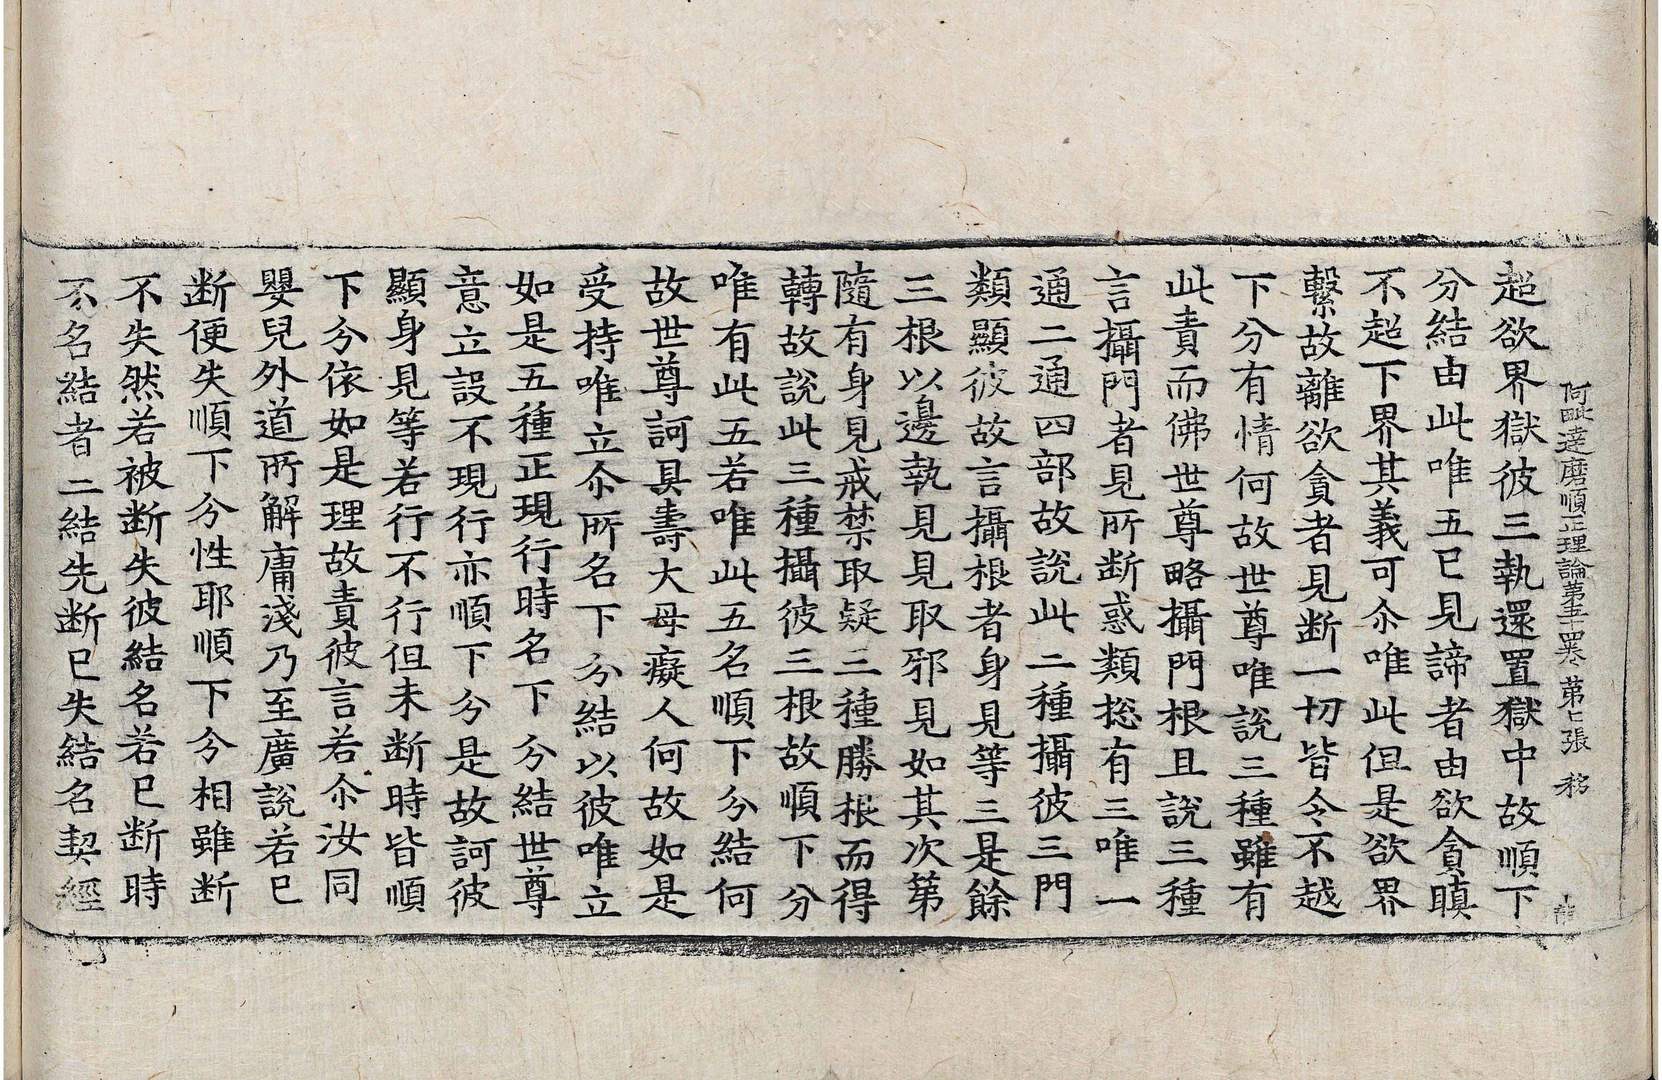 阿毗達磨順正理論第五十四卷 第七張 移
超欲界獄彼三執還置獄中故順下
分結由此唯五已見諦者由欲貪瞋
不超下界其義可尒唯此但是欲界
繫故離欲貪者見断一切皆令不越
下分有情何故世尊唯說三種雖有
此責而佛世尊略攝門根且說三種
言攝門者見所断惑類揔有三唯一
通二通四部故說此二種攝彼三門
類顯彼故言攝根者身見等三是餘
三根以邊執見見取邪見如其次第
隨有身見戒禁取疑三種勝根而得
轉故說此三種攝彼三根故順下分
唯有此五若唯此五名順下分結何
故世尊訶具壽大母癡人何故如是
受持唯立尒所名下分結以彼唯立
如是五種正現行時名下分結世尊
意立設不現行亦順下分是故訶彼
顯身見等若行不行但未断時皆順
下分依如是理故責彼言若尒汝同
嬰兒外道所解庸淺乃至廣說若已
断便失順下分性耶順下分相雖断
不失然若被断失彼結名若已断時
不名結者二結先断已失結名契經